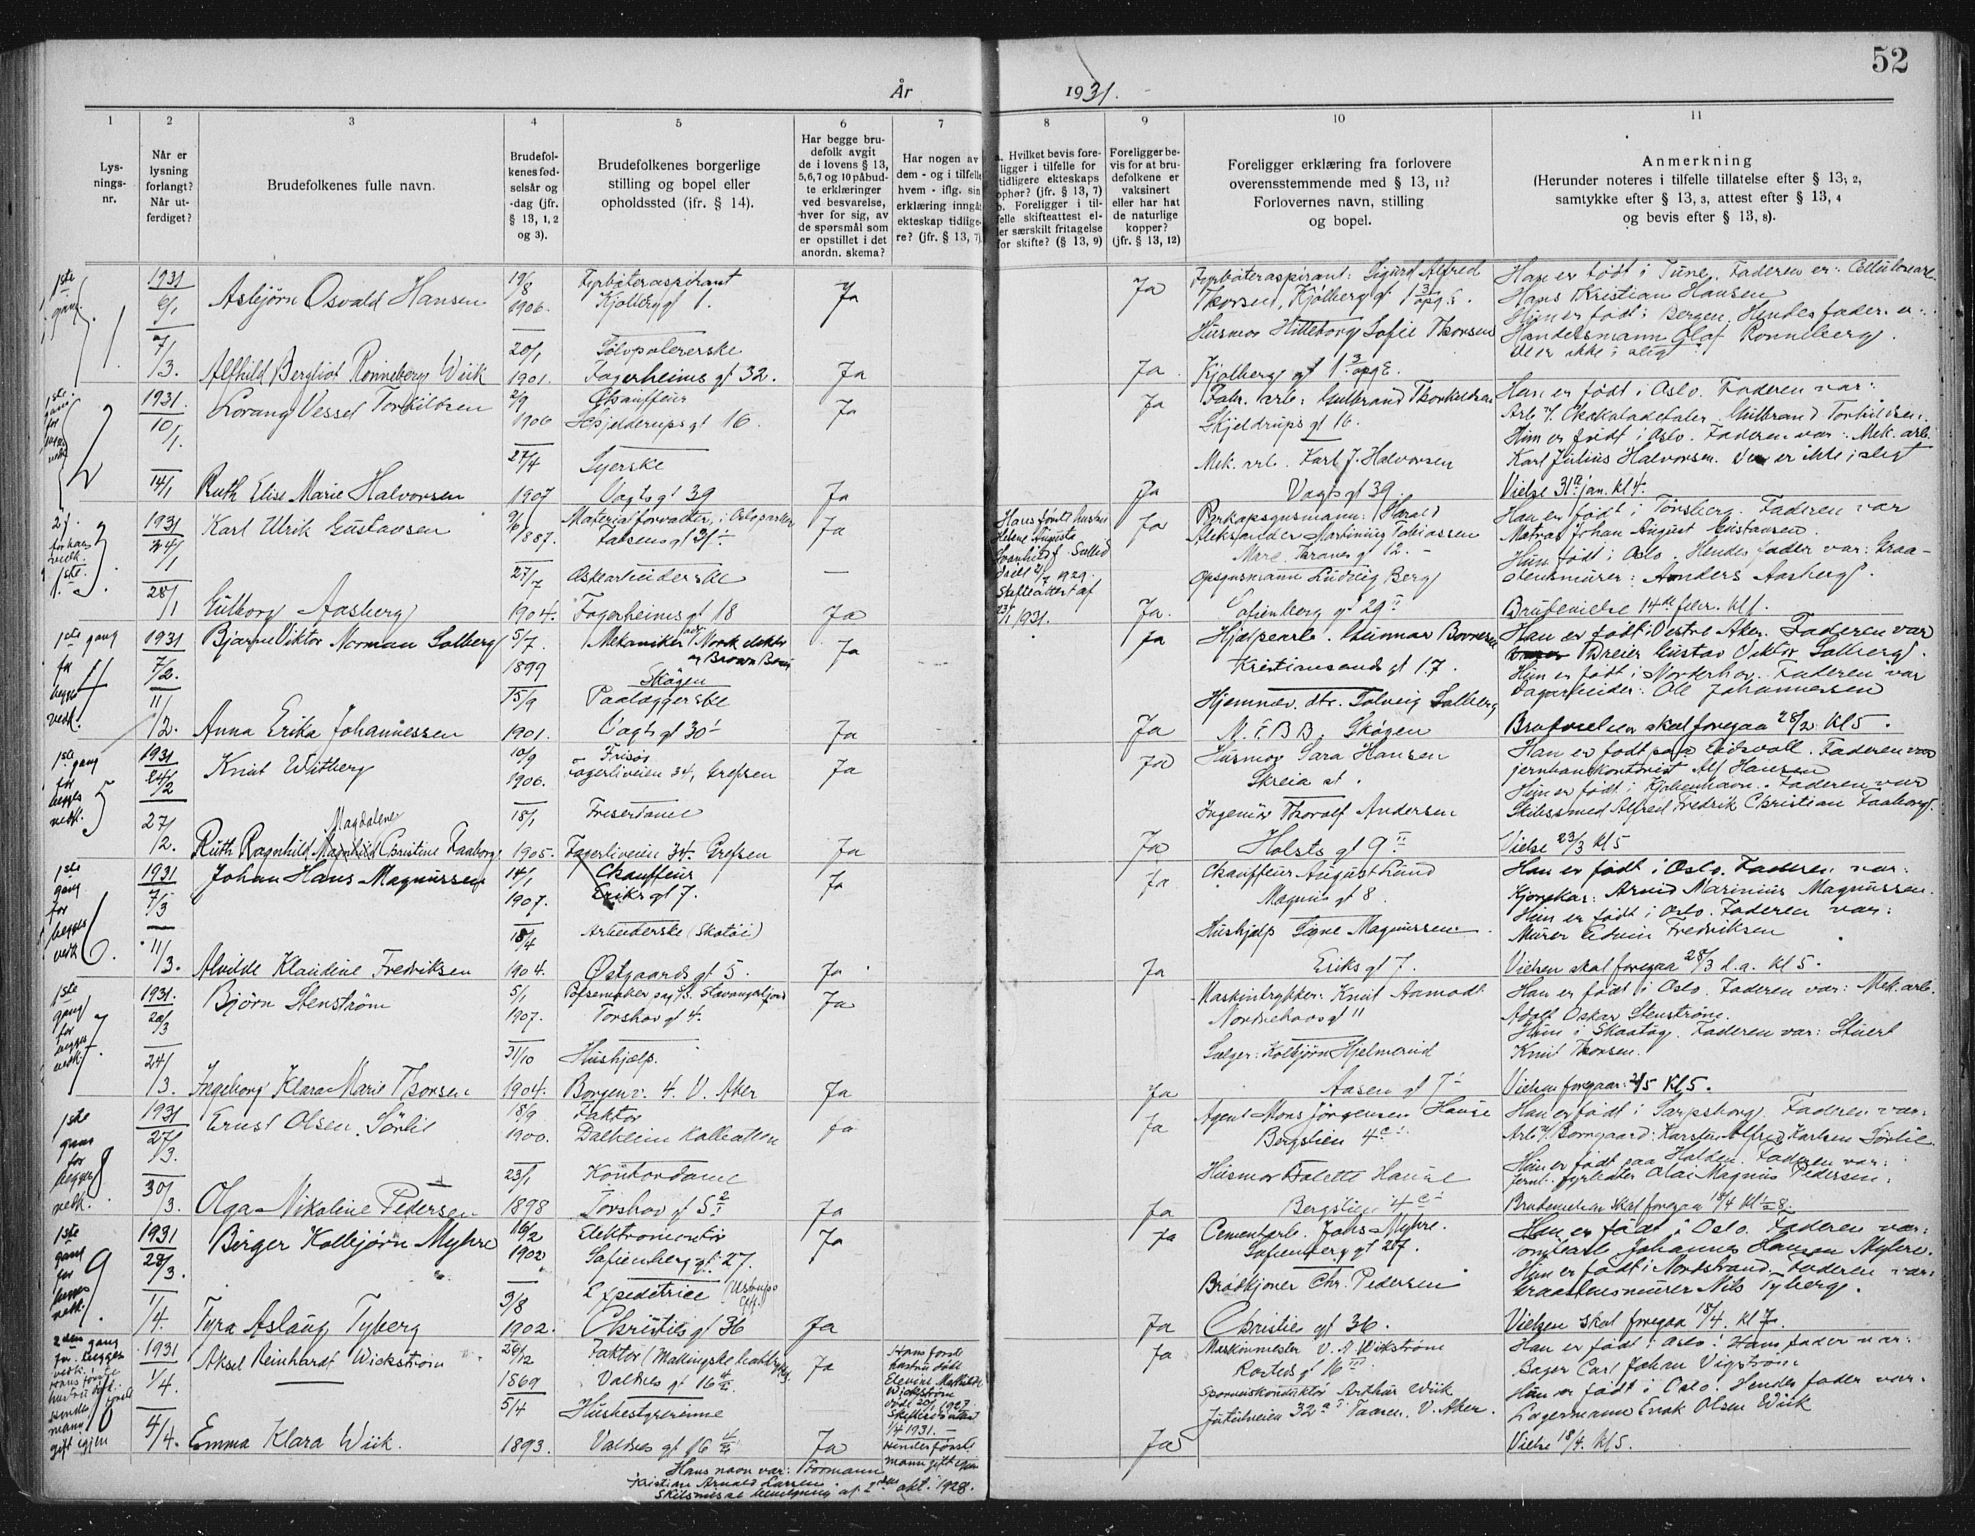 52
År 1931.
1 2 3 4 5 6 7 8 9 10 11
Lys-
nings-
nr.
Når er
lysning
forlangt?
Når ut-
ferdiget?
Brudefolkenes fulle navn.
Brudefol-
kenes fød-
selsår og
-dag (jfr.
§ 13, 1, 2
og 3).
Brudefolkenes borgerlige
stilling og bopel eller
opholdssted (ifr. § 14).
Har begge bru-
defolk avgit
de i lovens § 13,
5,6,7 og 10 påbud-
te erklæringer
ved besvarelse,
hver for sig, av
de spørsmål som
er opstillet i det
anordn. skema?
Har nogen av
dem - og i tilfelle
hvem - iflg. sin
erklæring inngåt
ekteskap tidlige-
re? (jfr. § 13, 7)
a. Hvilket bevis fore-
ligger i tilfelle for
tidligere ekteskaps
ophør? (jfr. § 13, 7)
b. Foreligger i til-
felle skifteattest el-
ler særskilt fritagelse
for skifte? (§ 13, 9)
Foreligger be-
vis for at bru-
defolkene er
vaksinert
eller har hat
de naturlige
kopper?
(jfr. § 13, 12)
Foreligger erklæring fra forlovere
overensstemmende med § 13, 11?
Forlovernes navn, stilling
og bopel.
Anmerkning
(Herunder noteres i tilfelle tillatelse efter § 13, 2,
samtykke efter § 13, 3, attest efter § 13, 4
og bevis efter § 13, 8).
1ste gang
1
1931
6/1
7/1
3.
Asbjørn Osvald Hansen
19/8
1906.
Fyrbøteraspirant
Kjølberg gt 1.
Ja
Ja
Fyrbøteraspirant: Sigurd Alfred
Thorsen, Kjølberg gt 1
Husmor Hilleborg Sofie Thorsen
Kjølberg gt 1
Han er født i Tune. Faderen er: Cellulosearb.
Hans Kristian Hansen
Hun er født i Bergen. Hendes fader er:
Handelsmann Olaf Ronneberg.
De er ikke i slegt
Alfhild Bergliot Rønneberg Wiik
20/1
1901.
Sølvpolererske
Fagerheims gt 32.
Ja
Ja.
1ste gang for begges vedk.
2
1931
10/1.
14/1
Lorang Vessel Torkildsen
2/9
1906
Chauffeur
Hesjelderups gt 16.
Ja
Ja
Fabr. arb: Gulbrand Thorkildsen
Skjeldrups gt 16.
Mek. arb. Karl J. Halvorsen
Vagts gt 39.
Han er født i Oslo. Faderen var:
Arb. v/ Chokoladefabr. Gulbrand Torkildsen.
Hun er født i Oslo. Faderen var: Mek. arb.
Karl Julius Halvorsen. De er ikke i slegt
Vielse 31te jan. kl 4.
Ruth Elise Marie Halvorsen
27/4
1907
Syerske
Vagts gt 39
Ja
Ja
3
1931
24/1
28/1
Karl Ulrik Gustavsen
9/6
1887.
Materialforvalter, i Oslo
Ja
Hans første hustru
Helene Augusta
død 2/7 1929.
Skifteattest af
23/1 1931.
Ja
Harald
Aleksander Martinius Tobiassen
Marc. Thranes gt 12.
Opsynsmann Ludvig Berg
Sofienberg gt 29 II
Han er født i Tønsberg. Faderen var
Matros Johan August Gustavsen.
Hun født i Oslo. Hendes fader var: Graa-
stensmurer: Anders Aasberg.
Brudevielse 14de febr. kl 1.
Gulborg Aasberg
27/7
1904.
Æskearbeiderske
Fagerheims gt 18
Ja
Ja.
1ste gang for begges vedk.
4
1931
7/2.
11/2.
Bjarne Viktor Norman Solberg
5/7.
1899
Mekaniker ved Norsk elektr.
og Brown Boveri
Skøgen
Ja
Ja
Hjelpearb. Gunnar
Kristiansands gt 17.
Hjemmev. dtr. Solveig Solberg
N. E B B. Skøgen
Han er født i Vestre Aker. Faderen var
Dreier Gustav Viktor Solberg.
Hun er født i Norderhov. Faderen var
Dagarbeider: Ole Johannessen
Brudvielsen skal foregaa 28/2 kl 5.
Anna Erika Johannessen
15/9
1901.
Paalæggerske
Vagts gt 30
Ja
Ja
1ste gang for begges vedk.
5
1931
24/2
27/2.
Knut Widberg
10/9
1906.
Frisør
Fagerliveien 34, Grefsen
Ja
Ja
Husmor Sara Hansen
Skreia st.
Ingeniør Thoralf Andersen
Holsts gt 9 II
Han er født paa Eidsvoll. Faderen var
jernbanekontorist Alf Hansen
Hun er født i Kjøbenhavn. Faderen var
Alfred Fredrik Christian Faaborg.
Vielse 23/3 kl 5
Magdalene
Ruth Ragnhild Christine Faaborg
18/1
1905.
Friserdame
Fagerliveien 34. Grefsen
Ja
Ja
1ste gang for begges vedk.
6.
1931
7/3
11/3.
Johan Hans Magnussen
14/1
1907.
Chauffeur
Eriks gt 7.
Ja
Ja.
Chauffeur August Lund
Magnus gt 8.
Hushjelp Signe Magnussen
Eriks gt 7.
Han er født i Oslo. Faderen var:
Kjørekar: Arvid Marinius Magnussen.
Hun er født i Oslo. Faderen var:
Murer Edvin Fredriksen
Vielsen skal foregaa 28/3 d.a. kl 5.
Alvilde Klaudine Fredriksen
18/4
1904.
Arbeiderske (Skotøi)
Østgaards gt 5.
Ja.
Ja
1ste gang for begges vedk.
7.
1931.
20/3
24/3.
Bjørn Stenstrøm
5/1
1907.
Torshov gt 4.
Ja
Maskintrykker: Knut Aamodt
Nordrehovs gt 11
Sælger: Kolbjørn Hjelmerud
Aasen gt 7
Han er født i Oslo. Faderen var: Mek. arb.
Adolf Oskar Stenstrøm.
Hun i Skaatøy. Faderen var: Stuert
Knut Thorsen.
Vielsen foregaar 2/5 kl 5.
Ingeborg Klara Marie Thorsen
31/10
1904.
Hushjælp.
Borgenv. 4. V. Aker
Ja
Ja
1ste gang for begges vedk.
8
1931
27/3.
30/3.
Ernst Olsen Sørlie
18/9
1900.
Faktor
Dalheim Kolbotten
Ja
Ja
Agent Mons Jørgensen Hause
Bergslien 4 c
Husmor Bolette Hause
Bergslien 4 c
Han er født i Sarpsborg. Faderen var:
Arb. v/ Borregaard: Karsten Alfred Karlsen Sørlie
Hun er født paa Halden. Faderen var:
Fyrbøter Olai Magnus Pedersen.
Brudevielsen skal foregaa 18/4 kl ½ 8.
Olga Nikoline Pedersen
23/1
1898
Kontordame
Torshov gt 5
Ja
Ja
1ste gang for begges vedk.
9
1931
28/3.
1/4.
Birger Kolbjørn Myhre
16/2
1902
Elektromontør
Sofienberg gt 27.
Ja
Ja
Cementarb. Johs Myhre.
Sofienberg gt 27.
Brødkjører Chr. Pedersen
Christies gt 36.
Han er født i Oslo. Faderen var:
Johannes Hansen Myhre.
Hun er født i Nordstrand. Faderen var:
Graastensmurer Nils Tyberg.
Vielsen skal foregaa 18/4. kl 7.
Tyra Aslaug Tyberg
3/8
1902.
Expeditrice
Christies gt 36
Ja
Ja
2den gang for begges vedk.
Hans første
hustru død.
Hendes første
mann
gift igjen
10
1931
1/4.
4/4.
Aksel Reinhardt Wickstrøm
26/12
1869
Faktor
Valdres gt 16
Ja
Hans første
hustru død
Elevine Mathilde
Wickstrøm
død 20/1 1927
Skifteattest
1/4 1931.
Hendes første
mann gift igjen
Ja
Maskinmester V. A Wikstrøm
Rosteds gt 16 III
Sporveiskonduktør Arthur Wiik
Jutulveien 32 Taasen. V. Aker.
Han er født i Oslo. Hans fader var:
Bager Carl Johan Vigstrøm
Hun er født i Oslo. Hendes fader var.
Lagermann Evak Olsen Wiik
Vielse 18/4. kl 5.
Emma Klara Wiik.
5/4
1893.
Husbestyrerinne
Valdres gt 16
Ja
Ja
Hans navn var: Formann
Kristian Arnold Larsen.
Skilsmisse bevilgning af 2den okt. 1928.